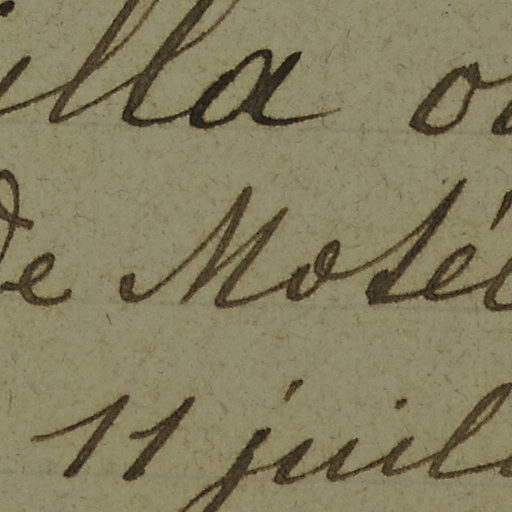 illa o
de Moté
11 juil